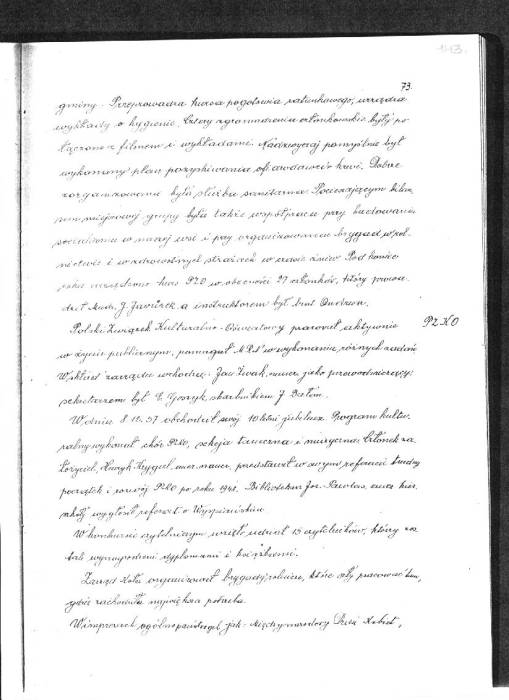 113.
73.
gminy. Przeprowadza kursa pogotowia ratunkowego, urządza
wykłady o hygienie. Cztery zgromadzenia członkowskie były po
łączone z filmem i wykładami. Nadzwyczaj pomyślnie był
wykonany plan pozyskiwania ofiarodawców krwi. Dobrze
zorganizowana była służba sanitarna. Pocieszającym
miejscowej grupy była także współpraca przy budowaniu
socializmu w naszej wsi i przy organizowaniu brygad w rol
nictwie i w zdrowotnych strażach w czasie żniw. Pod koniec
roku urządzono kurs PZO w obecności 27 członków, który prowa
dził Mudr. J. Javůrek, a instruktorem był brat
Polski Związek Kulturalno-Oświatowy pracował aktywnie PZKO
w życiu publicznym, pomagał MRN w wykonaniu różnych zadań
W skład zarządu wchodzą: Jan naucz. jako przewodniczący,
sekretarzem był skarbnikiem J.
W dniu 8.12.57 obchodził swój 10 letni jubileusz. Program kultu
ralny wykonał chór PZKO, sekcja taneczna i muzyczna. Członek za
łożyciel, Henryk em. naucz., przedstawił w swym referacie trudny
początek i rozwój PZKO po roku 194 . Bibliotekarz Joz. Pawlas, kier.
szkoły wygłosił referat o Wyspiańskim.
W konkursie czytelniczym wzięło udział 15 czytelników, którzy zo
stali wynagrodzeni dyplomami i książkami.
Zarząd Koła organizował brygady rolnicze, które szły pracować tam,
gdzie zachodziła największa potrzeba.
W imprezach jak: Międzynarodowy Dzień Kobiet,